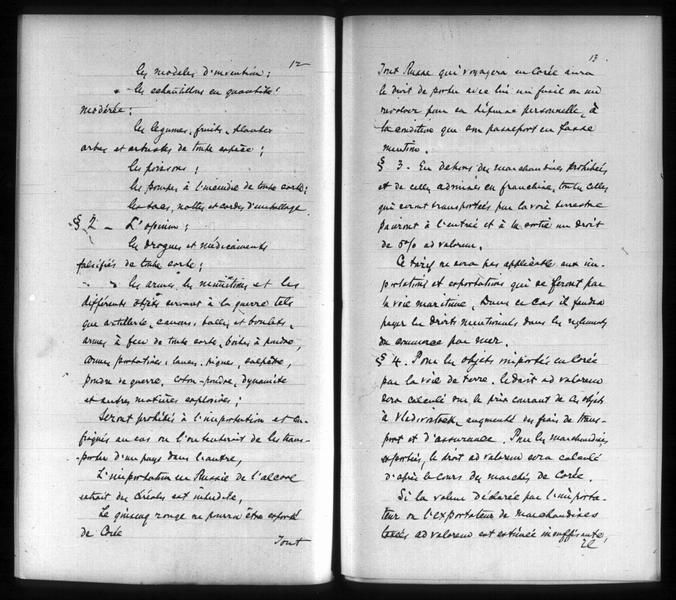 12
les modèles d'invention;
" les échantillons en quantité
modérée;
les légumes, fruits, plantes
arbres et arbustes de toute espèce;
les poissons;
les pompes à l'incendie de toute sorte;
les sacs, nattes et cordes d'emballage.
§ 2 - L'opium;
les drogues et médicaments
falsifiés de toute sorte;
" " les armes, les munitions et les
différents objets servant à la guerre tels
que artillerie, canons, balles et boulets,
armes à feu de toute sorte, boîtes à poudre,
armes portatives, lances, piques, salpêtre,
poudre de guerre, coton-poudre, dynamite
et autres matières explosives;
Seront prohibés à l'importation et con-
fisqués au cas où l'on tenterait de les trans-
porter d'un pays dans l'autre,
L'importation en Russie de l'alcool
extrait des céréales est interdite,
Le ginseng rouge ne pourra être exporté
de Corée
Tout
13.
Tout Russe qui voyagera en Corée aura
le droit de porter avec lui un fusil ou un
revolver pour sa défense personnelle, à
la condition que son passeport en fasse
mention.
§ 3. En dehors des marchandises prohibées
et de celles admises en franchise, toutes celles
qui seront transportées par la voie terrestre
paieront à l'entrée et à la sortie un droit
de 5% ad valorem.
Ce tarif ne sera pas applicable aux im-
portations et exportations qui se feront par
la voie maritime. Dans ce cas il faudra
payer les droits mentionnés dans les règlements
du commerce par mer.
§ 4. Pour les objets importés en Corée
par la voie de terre, le droit ad valorem
sera calculé sur le prix courant de ces objets
à Vladivostock, augmenté des frais de trans-
port et d'assurance. Pour les marchandises
exportées, le droit ad valorem sera calculé
d'après le cours des marchés de Corée.
Si la valeur déclarée par l'importa-
teur ou l'exportateur de marchandises
taxées ad valorem est estimée insuffisante,
il